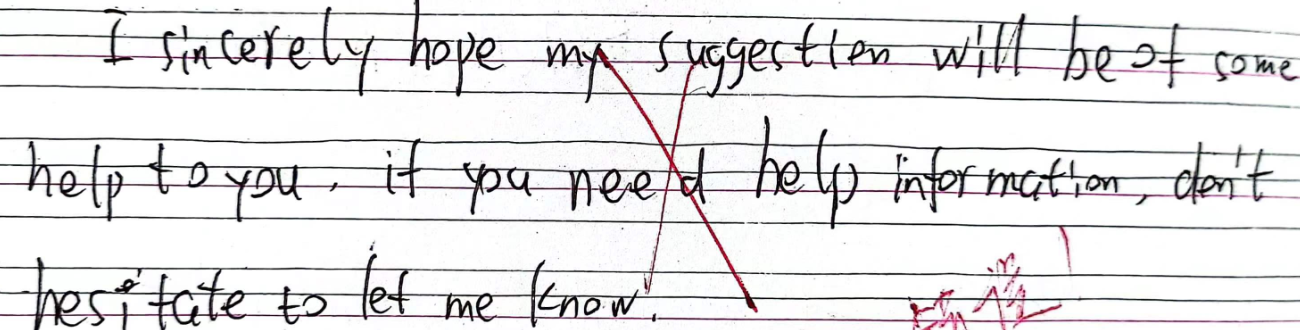 I sincerely hope my suggestion will be of some
help to you. if you need help information, don't
hesitate to let me know!